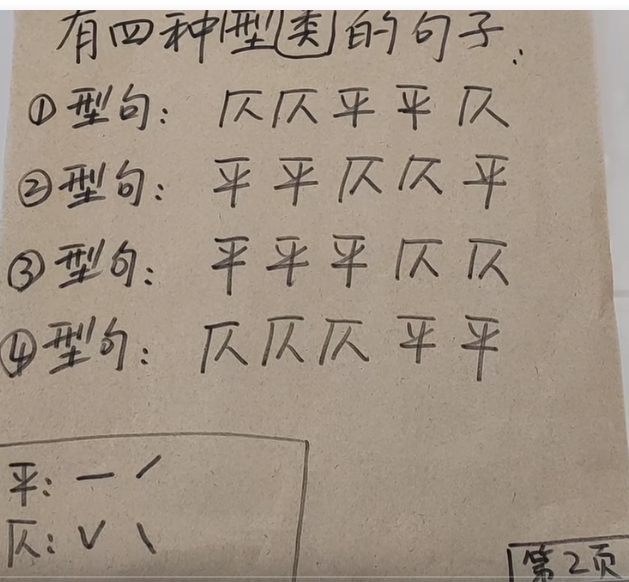 有四种型类的句子:
①型句: 仄仄平平仄
②型句: 平平仄仄平
③型句: 平平平仄仄
④型句: 仄仄仄平平
平: ー ˊ
仄: ˇ ˋ
第2页